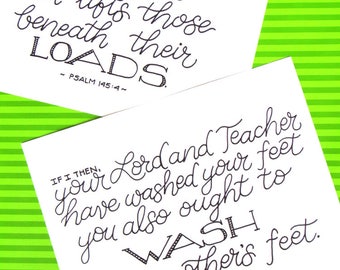 lifts those
beneath their
LOADS.
~ PSALM 145:4 ~
IF I THEN,
your Lord and Teacher
have washed your feet
you also ought to
WASH
other's feet.